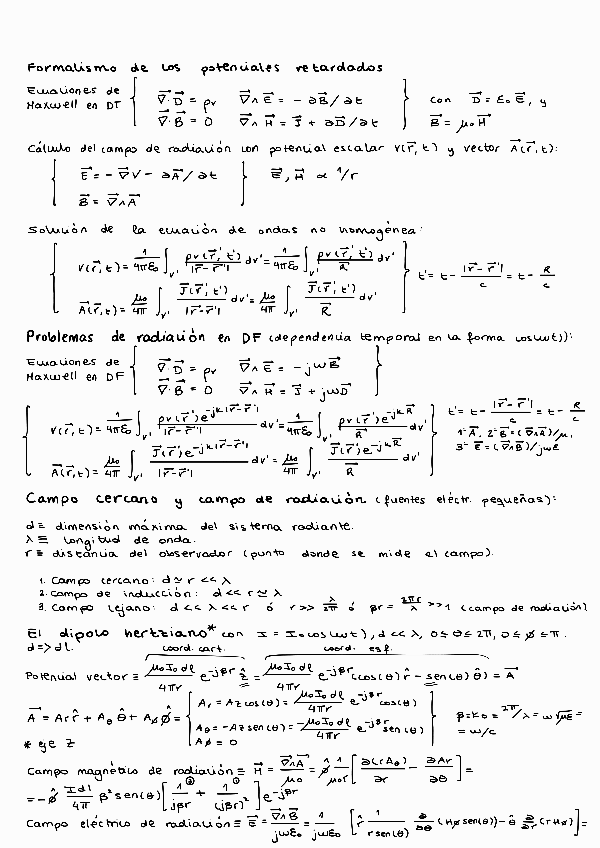 Formalismo de los potenciales retardados
Ecuaciones de Maxwell en DT { ∇·D⃗ = ρv   ∇∧E⃗ = -∂B⃗/∂t } con D⃗ = ε₀E⃗, y
∇·B⃗ = 0   ∇∧H⃗ = J⃗ + ∂D⃗/∂t   B⃗ = μ₀H⃗
Cálculo del campo de radiación con potencial escalar V(r⃗,t) y vector A⃗(r⃗,t):
{ E⃗ = -∇V - ∂A⃗/∂t } E⃗, H⃗ ∝ 1/r
B⃗ = ∇∧A⃗
Solución de la ecuación de ondas no homogénea:
V(r⃗,t) = 1/4πε₀ ∫v' ρv(r⃗',t')/|r⃗-r⃗'| dv' = 1/4πε₀ ∫v' ρv(r⃗',t')/R⃗ dv'   t' = t - |r⃗-r⃗'|/c = t - R/c
A⃗(r⃗,t) = μ₀/4π ∫v' J⃗(r⃗',t')/|r⃗-r⃗'| dv' = μ₀/4π ∫v' J⃗(r⃗',t')/R⃗ dv'
Problemas de radiación en DF (dependencia temporal en la forma cos(ωt)):
Ecuaciones de Maxwell en DF { ∇·D⃗ = ρv   ∇∧E⃗ = -jωB⃗ }
∇·B⃗ = 0   ∇∧H⃗ = J⃗ + jωD⃗
V(r⃗,t) = 1/4πε₀ ∫v' ρv(r⃗')e^-jk|r⃗-r⃗'|/|r⃗-r⃗'| dv' = 1/4πε₀ ∫v' ρv(r⃗')e^-jkR⃗/R⃗ dv'   t' = t - |r⃗-r⃗'|/c = t - R/c
A⃗(r⃗,t) = μ₀/4π ∫v' J⃗(r⃗')e^-jk|r⃗-r⃗'|/|r⃗-r⃗'| dv' = μ₀/4π ∫v' J⃗(r⃗')e^-jkR⃗/R⃗ dv'   1º A⃗, 2º B⃗ = (∇∧A⃗)/μ,
3º E⃗ = (∇∧B⃗)/jωε
Campo cercano y campo de radiación (fuentes eléctr. pequeñas):
d ≡ dimensión máxima del sistema radiante.
λ ≡ longitud de onda.
r ≡ distancia del observador (punto donde se mide el campo).
1. Campo cercano: d ≃ r << λ
2. campo de inducción: d << r ≃ λ
3. Campo lejano: d << λ << r ó r >> λ/2π ó βr = 2πr/λ >> 1 (campo de radiación)
El dipolo hertziano* con I = I₀cos(ωt), d << λ, 0 ≤ θ ≤ 2π, 0 ≤ ϕ ≤ π.
d => dl.   coord. cart.   coord. esf.
Potencial vector ≡ μ₀I₀dl/4πr e^-jβr ẑ = μ₀I₀dl/4πr e^-jβr (cos(θ)r̂ - sen(θ)θ̂) = A⃗
A⃗ = Ar r̂ + Aθ θ̂ + Aϕ ϕ̂ = { Ar = Az cos(θ) = μ₀I₀dl/4πr e^-jβr cos(θ)   β = k₀ = 2π/λ = ω√με =
Aθ = -Az sen(θ) = -μ₀I₀dl/4πr e^-jβr sen(θ)   = ω/c
* eje z   Aϕ = 0
Campo magnético de radiación ≡ H⃗ = ∇∧A⃗/μ₀ = ϕ̂ 1/μ₀r [∂(rAθ)/∂r - ∂Ar/∂θ] =
= -ϕ̂ Idl/4π β² sen(θ) [1/jβr + 1/(jβr)²] e^-jβr
Campo eléctrico de radiación ≡ E⃗ = ∇∧B⃗/jωε₀ = 1/jωε₀ [r̂ 1/r sen(θ) ∂/∂θ (Hϕ sen(θ)) - θ̂ ∂/∂r (rHϕ)] =